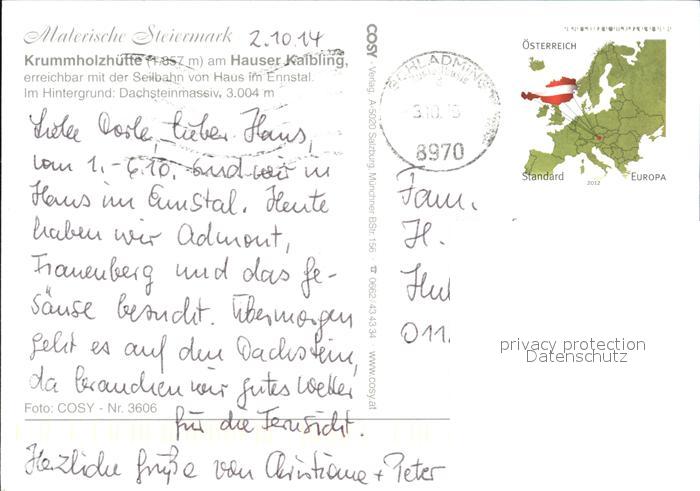 Malerische Steiermark
2.10.14
Krummholzhütte (1.857 m) am Hauser Kaibling,
erreichbar mit der Seilbahn von Haus im Ennstal.
Im Hintergrund: Dachsteinmassiv, 3.004 m
Liebe Dorle, lieber Hans,
vom 1.-6.10. sind wir in
Haus im Ennstal. Heute
haben wir Admont,
Frauenberg und das Ge-
säuse besucht. Übermorgen
geht es auf den Dachstein,
da brauchen wir gutes Wetter
für die Fernsicht.
Herzliche Grüße von Christiane + Peter
Foto: COSY - Nr. 3606
COSY · Verlag, A-5020 Salzburg, Münchner BStr. 156 · ☎ 0662/43 43 34 · www.cosy.at
SCHLADMING
8970
ÖSTERREICH
Standard
2012
EUROPA
Fam.
H.
011
privacy protection
Datenschutz